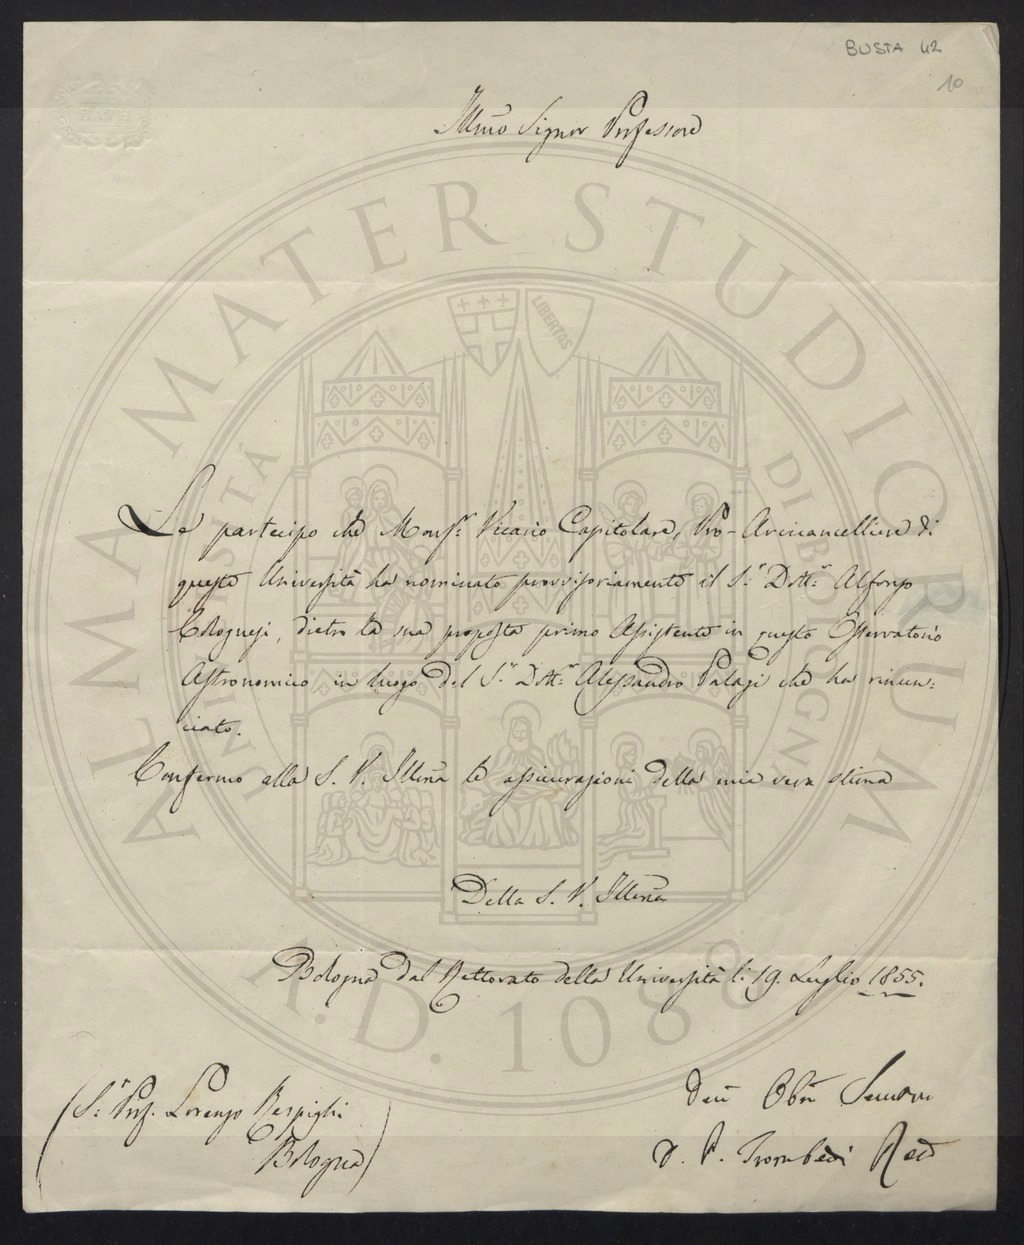 BUSTA 42
10
Illmo Signor Professore
Le partecipo che Monsr. Vicario Capitolare, Pro-Arcicancelliere di
questa Università ha nominato provvisoriamente il Sr. Dottr. Alfonso
Bolognesi, dietro la sua proposta primo Assistente in questo Osservatorio
Astronomico in luogo del Sr. Dottr. Alessandro Palagi che ha rinun=
ciato.
Confermo alla S. V. Illma le assicurazioni della mia vera stima
Della S. V. Illma
Bologna dal Rettorato della Università li 19. Luglio 1855.
(Sr. Prof. Lorenzo Respighi
Bologna)
Dev Obb Servitore
D. P. Trombetti Rett
ALMA MATER STUDIORUM
UNIVERSITÀ DI BOLOGNA
LIBERTAS
A.D. 1088